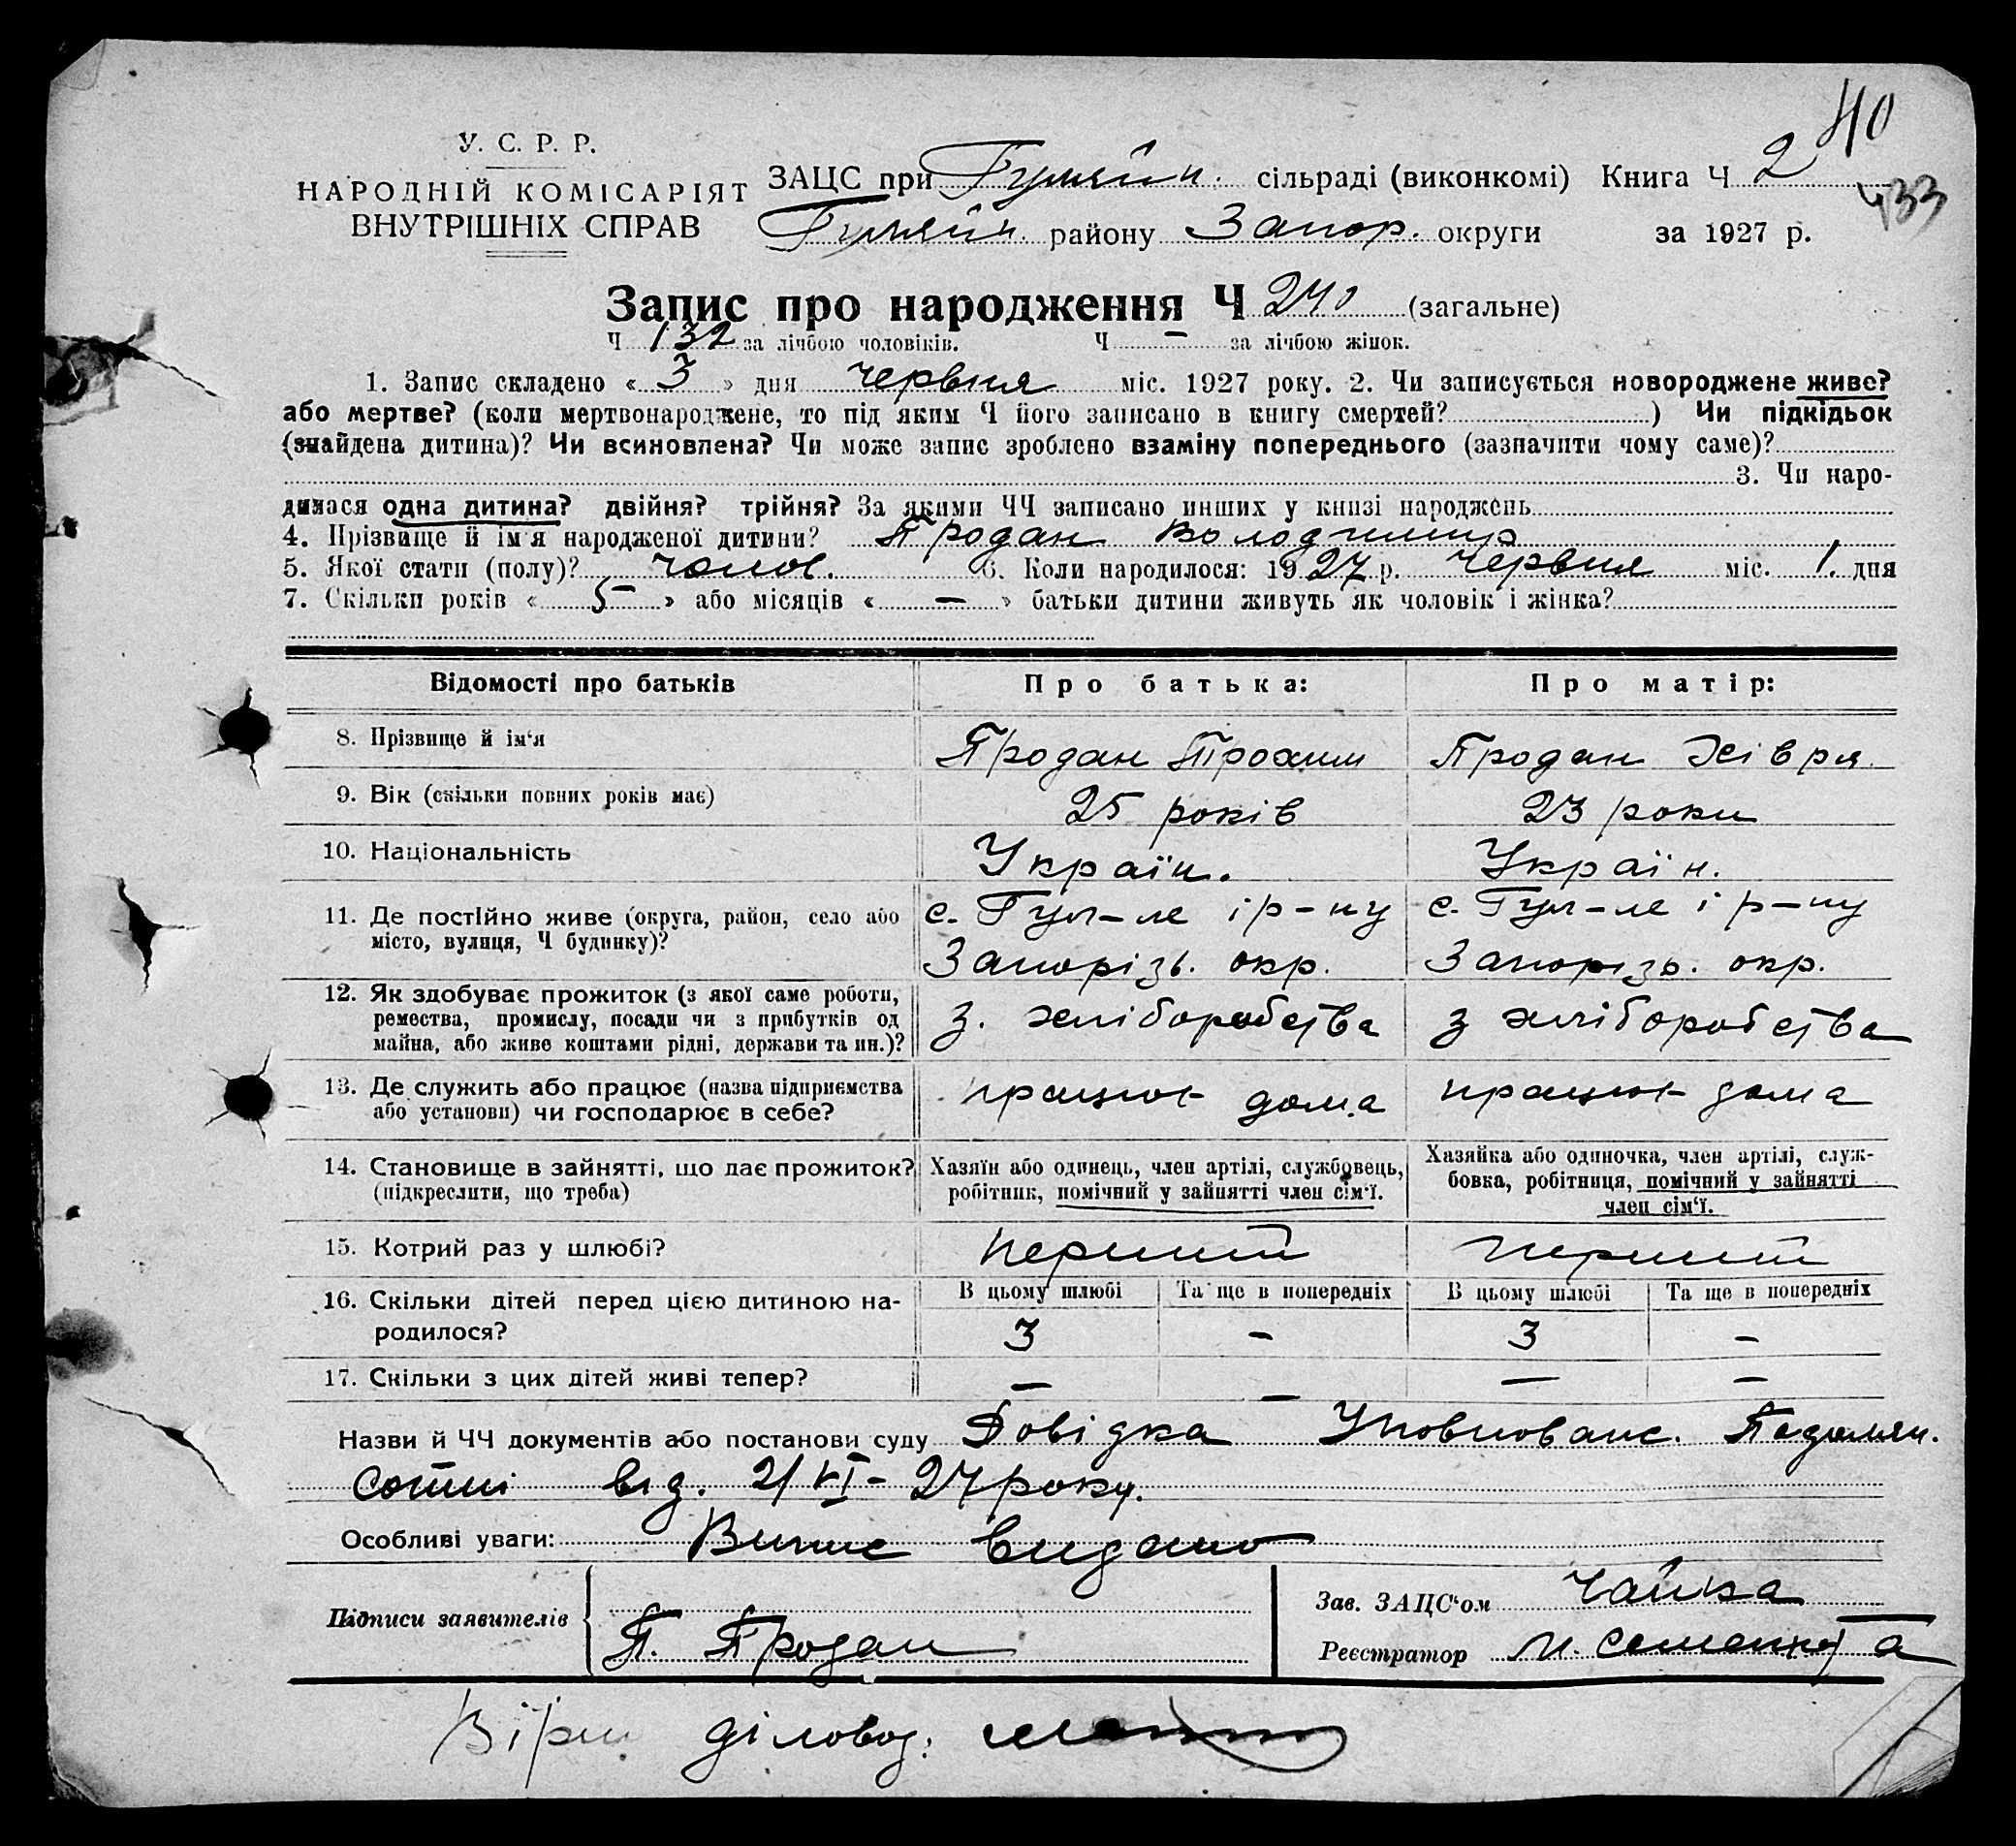 40
У. С. Р. Р.
НАРОДНІЙ КОМІСАРІЯТ
ВНУТРІШНІХ СПРАВ
ЗАЦС при Гуляйп. сільраді (виконкомі) Книга Ч 2
433
Гуляйп. району Запор. округи за 1927 р.
Запис про народження Ч 240 (загальне)
Ч 132 за лічбою чоловіків. Ч — за лічбою жінок.
1. Запис складено « 3 » дня червня міс. 1927 року. 2. Чи записується новороджене живе?
або мертве? (коли мертвонароджене, то під яким Ч його записано в книгу смертей? ) Чи підкідьок
(знайдена дитина)? Чи всиновлена? Чи може запис зроблено взаміну попереднього (зазначити чому саме)?
3. Чи наро-
дилася одна дитина? двійня? трійня? За якими ЧЧ записано инших у книзі народжень
4. Прізвище й ім'я народженої дитини? Продан Володимир
5. Якої стати (полу)? чолов. 6. Коли народилося: 1927 р. червня міс. 1. дня
7. Скільки років « 5 » або місяців « — » батьки дитини живуть як чоловік і жінка?
Відомості про батьків Про батька: Про матір:
8. Прізвище й ім'я Продан Трохим Продан Хівря
9. Вік (скільки повних років має) 25 років 23 роки
10. Національність Україн. Україн.
11. Де постійно живе (округа, район, село або місто, вулиця, Ч будинку)? с. Гул-ле і р-ну Запорізь. окр. с. Гул-ле і р-ну Запорізь. окр.
12. Як здобуває прожиток (з якої саме роботи, ремества, промислу, посади чи з прибутків од майна, або живе коштами рідні, держави та ин.)? з. хліборобства з хліборобства
13. Де служить або працює (назва підприємства або установи) чи господарює в себе? працює дома працює дома
14. Становище в зайнятті, що дає прожиток? (підкреслити, що треба) Хазяїн або одинець, член артілі, службовець, робітник, помічний у зайнятті член сім'ї. Хазяйка або одиночка, член артілі, служ-бовка, робітниця, помічний у зайнятті член сім'ї.
15. Котрий раз у шлюбі? перший перший
16. Скільки дітей перед цією дитиною на-родилося? В цьому шлюбі Та ще в попередніх В цьому шлюбі Та ще в попередніх
3 – 3 –
17. Скільки з цих дітей живі тепер? — — — —
Назви й ЧЧ документів або постанови суду Довідка Уповнованс. Подолян.
Сотні від. 2/VI-27 року.
Особливі уваги: Випис видано
Підписи заявителів П. Продан
Зав. ЗАЦС'ом Чайка
Реєстратор
Вірн. діловод: